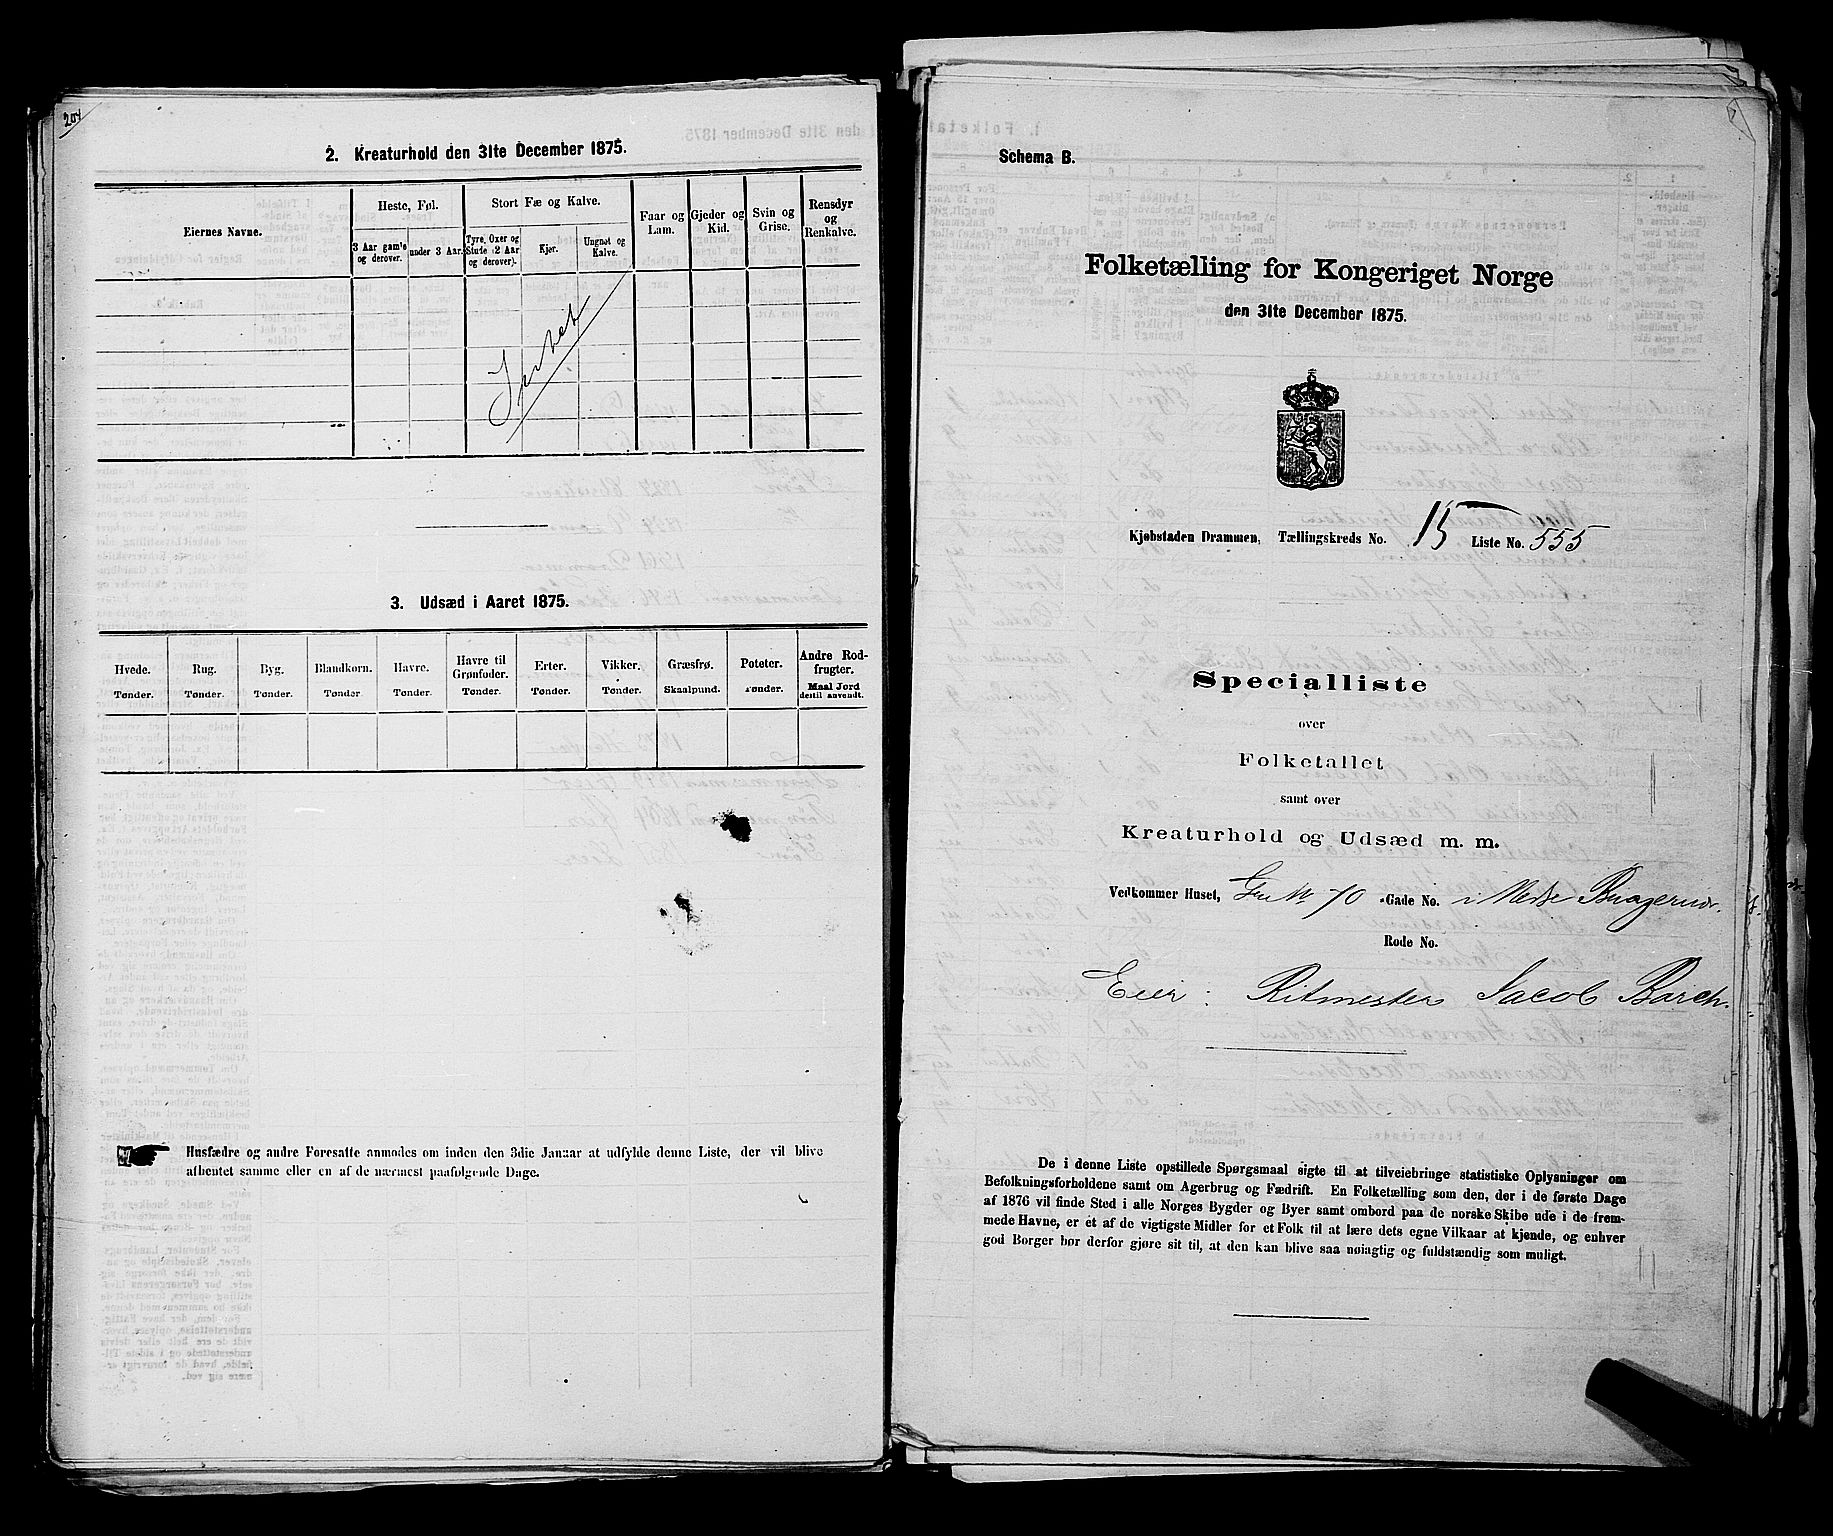 204
2. Kreaturhold den 31te December 1875.
Eiernes Navne.
Heste, Føl.
3 Aar gamle og derover.
under 3 Aar.
Stort Fæ og Kalve.
Tyre, Oxer og Stude (2 Aar og derover).
Kjør.
Ungnøt og Kalve.
Faar og Lam.
Gjeder og Kid.
Svin og Grise.
Rensdyr og Renkalve.
Intet
3. Udsæd i Aaret 1875.
Hvede. Tønder.
Rug. Tønder.
Byg. Tønder.
Blandkorn. Tønder.
Havre. Tønder.
Havre til Grønfoder. Tønder.
Erter. Tønder.
Vikker. Tønder.
Græsfrø. Skaalpund.
Poteter. Tønder.
Andre Rodfrugter. Maal Jord dertil anvendt.
Husfædre og andre Foresatte anmodes om inden den 3die Januar at udfylde denne Liste, der vil blive
afhentet samme eller en af de nærmest paafølgende Dage.
Schema B.
Folketælling for Kongeriget Norge
den 31te December 1875.
Kjøbstaden Drammen, Tællingskreds No. 15 Liste No. 555
Specialliste
over
Folketallet
samt over
Kreaturhold og Udsæd m. m.
Vedkommer Huset, 70 Gade No. i Bragernær
Rode No.
Eier: Ritmester Jacob Borch.
De i denne Liste opstillede Spørgsmaal sigte til at tilveiebringe statistiske Oplysninger om
Befolkningsforholdene samt om Agerbrug og Fædrift. En Folketælling som den, der i de første Dage
af 1876 vil finde Sted i alle Norges Bygder og Byer samt ombord paa de norske Skibe ude i de frem-
mede Havne, er et af de vigtigste Midler for et Folk til at lære dets egne Vilkaar at kjende, og enhver
god Borger bør derfor gjøre sit til, at den kan blive saa nøiagtig og fuldstændig som muligt.